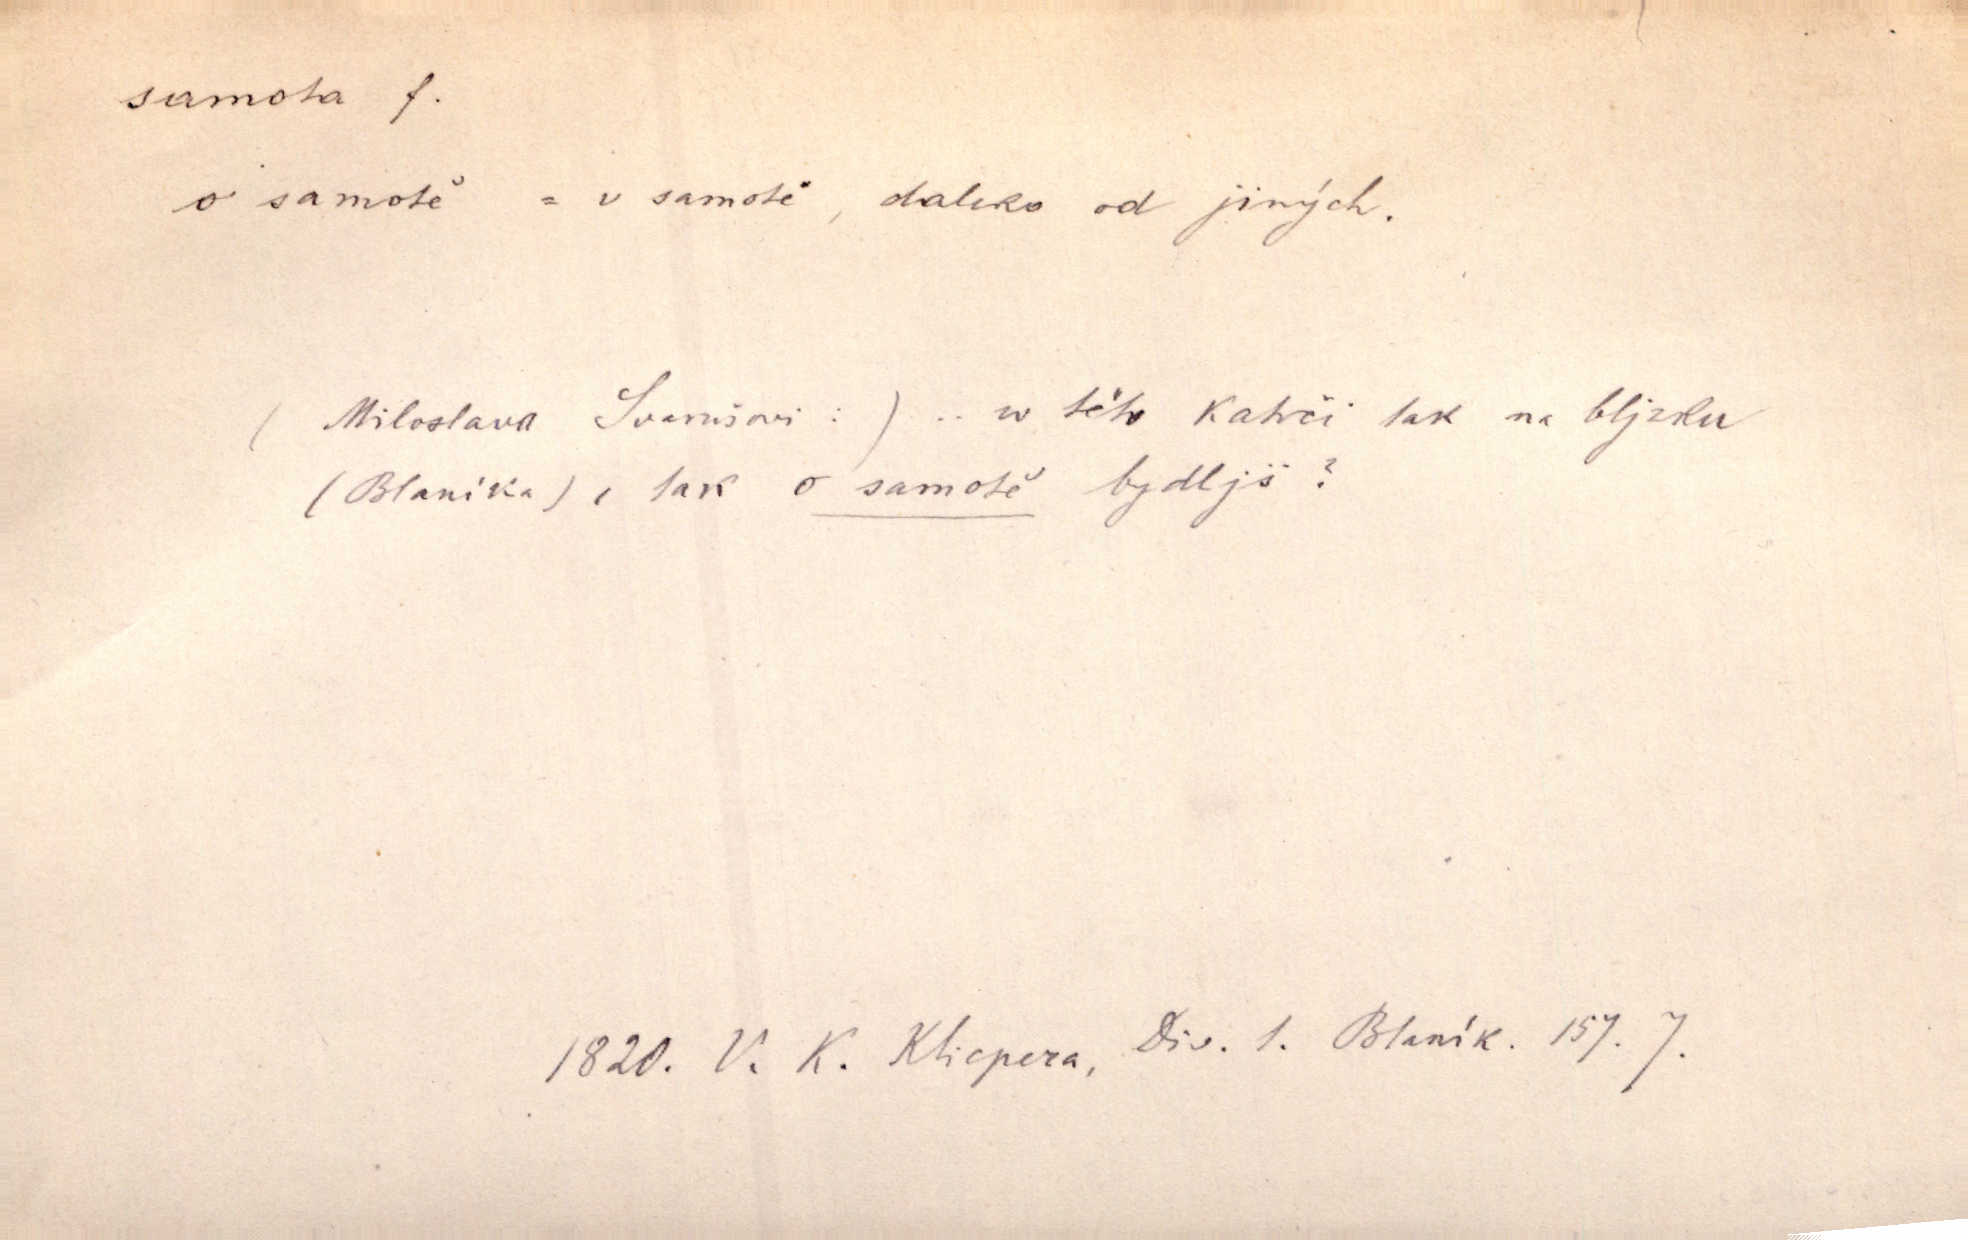 samota f.
o samotě = v samotě, daleko od jiných.
( Miloslava Svanišovi : ) .. w této Katrči tak na bljzku
(Blaníka), tak o samotě bydljš?
1820. V. K. Klicpera, Div. 1. Blaník. 157. 7.